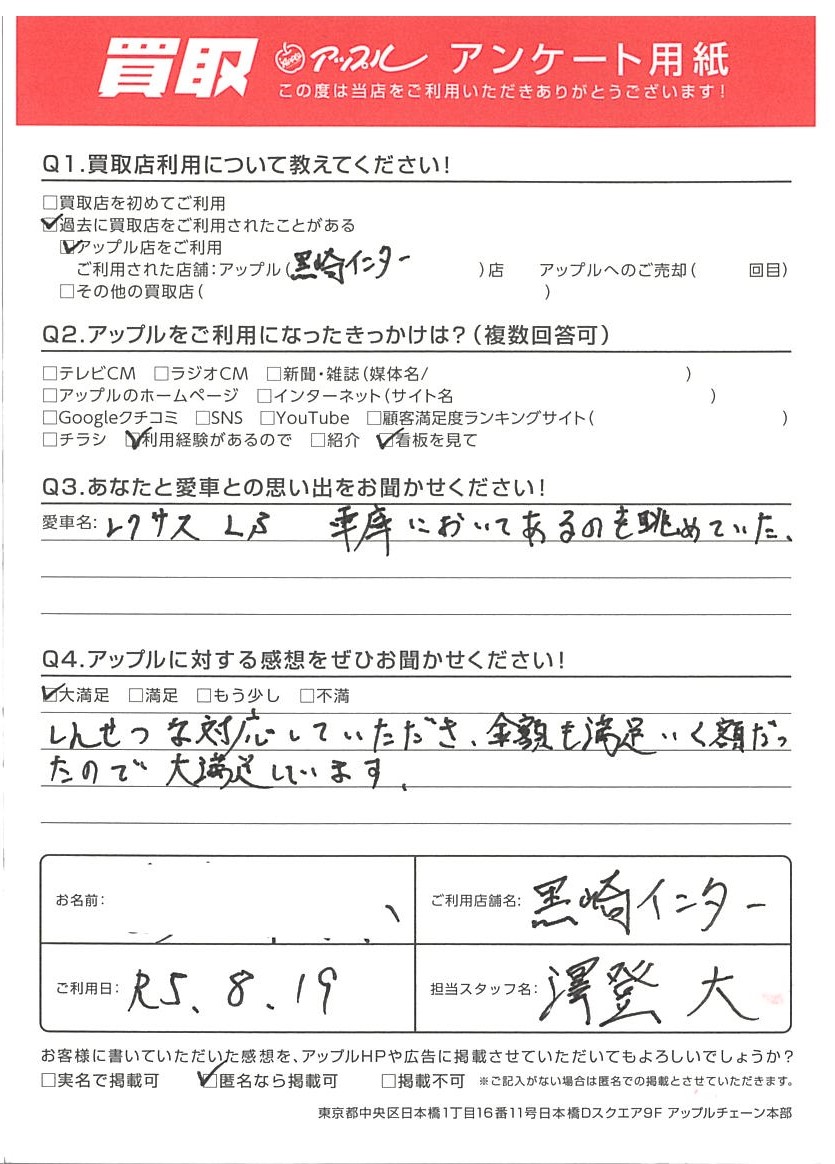 買取 アップル アンケート用紙
この度は当店をご利用いただきありがとうございます!
Q1.買取店利用について教えてください!
□買取店を初めてご利用
☑過去に買取店をご利用されたことがある
☑アップル店をご利用
ご利用された店舗:アップル(黒崎インター )店 アップルへのご売却( 回目)
□その他の買取店( )
Q2.アップルをご利用になったきっかけは?(複数回答可)
□テレビCM □ラジオCM □新聞・雑誌(媒体名/ )
□アップルのホームページ □インターネット(サイト名 )
□Googleクチコミ □SNS □YouTube □顧客満足度ランキングサイト( )
□チラシ ☑利用経験があるので □紹介 ☑看板を見て
Q3.あなたと愛車との思い出をお聞かせください!
愛車名:レクサス LS 車庫においてあるのを眺めていた、
Q4.アップルに対する感想をぜひお聞かせください!
☑大満足 □満足 □もう少し □不満
しんせつな対応していただき、金額も満足いく額だっ
たので大満足しています、
お名前: ご利用店舗名:黒崎インター
ご利用日:R5、8.19 担当スタッフ名:澤登 大
お客様に書いていただいた感想を、アップルHPや広告に掲載させていただいてもよろしいでしょうか?
□実名で掲載可 ☑匿名なら掲載可 □掲載不可 ※ご記入がない場合は匿名での掲載とさせていただきます。
東京都中央区日本橋1丁目16番11号日本橋Dスクエア9F アップルチェーン本部